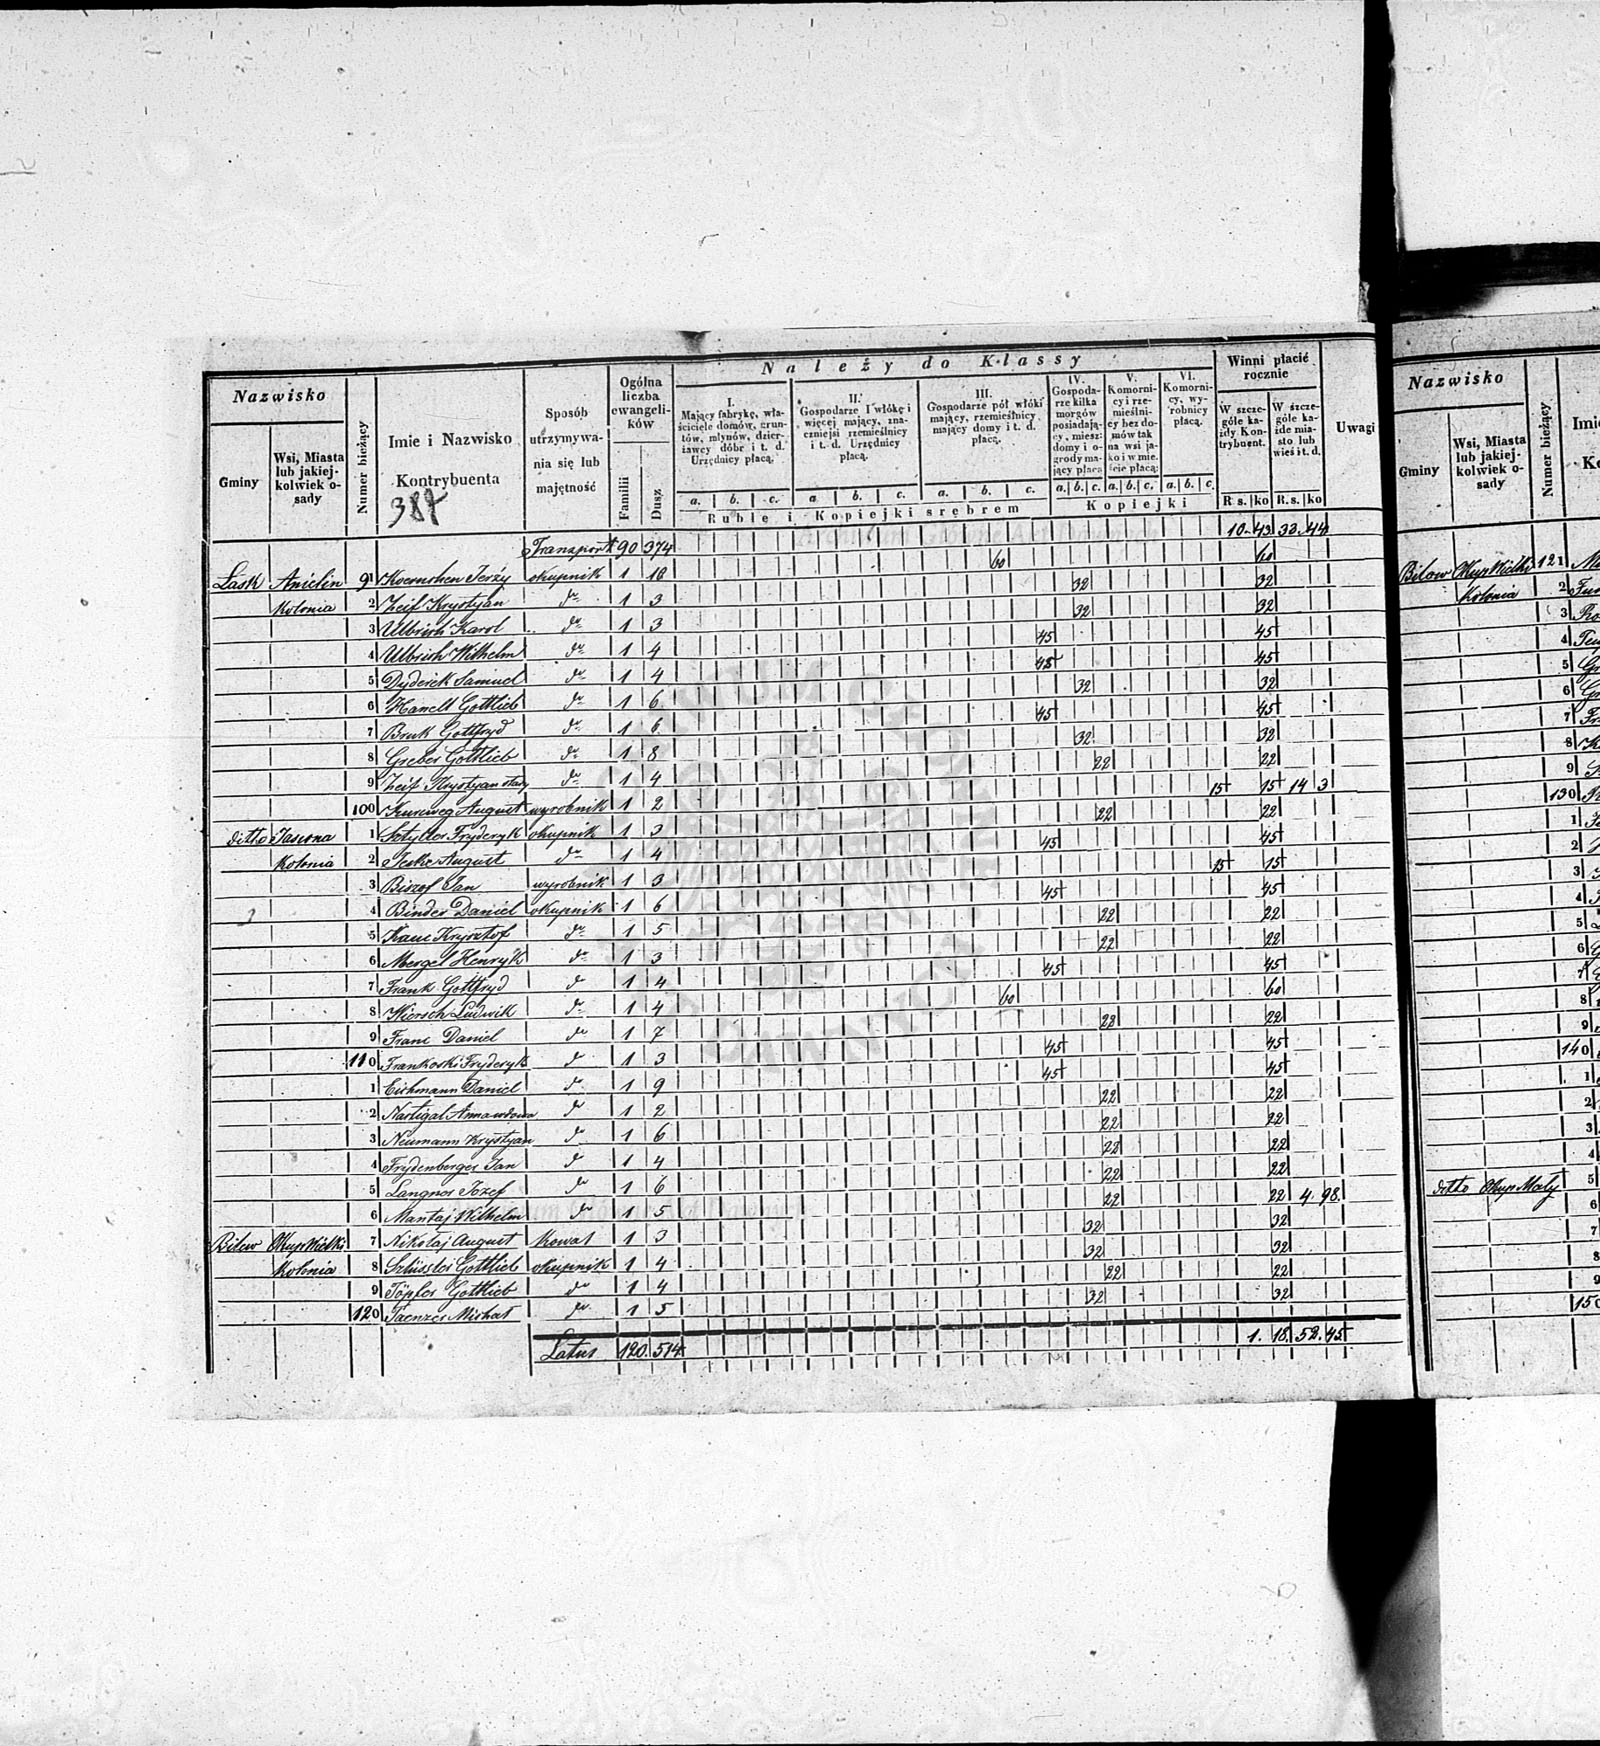 Należy do Klassy
Nazwisko
Gminy
Wsi, Miasta lub jakiej- kolwiek o- sady
Numer bieżący
Imie i Nazwisko
Kontrybuenta
387
Sposób utrzymywa- nia się lub majętność
Ogólna liczba ewangeli- ków
Familii
Dusz
I. Mający fabrykę, wła- ściciele domów, grun- tów, młynów, dzier- żawcy dóbr i t. d. Urzędnicy płacą.
II. Gospodarze 1 włókę i więcej mający, zna- czniejsi rzemieślnicy i t. d. Urzędnicy płacą.
III. Gospodarze pół włóki mający, rzemieślnicy mający domy i t. d. płacą.
IV. Gospoda- rze kilka morgów posiadają- cy, miesz: domy i o- grody ma- jący płacą
V. Komorni- cy i rze- mieślni- cy bez do- mów tak na wsi ja- ko i w mie- ście płacą:
VI. Komorni- cy, wy- robnicy płacą.
Winni płacić rocznie
W szcze- góle ka- żdy Kon- trybuent.
W szcze- góle ka- żde mia- sto lub wieś i t. d.
Uwagi
a. b. c. a b. c. a. b. c. a. b. c. a. b. c. a. b. c.
Ruble i Kopiejki srebrem
Kopiejki
R s. ko R s. ko
Transport 90 374 10. 43 33. 44
Łask Anielin 91 Koernchen Jerzy okupnik 1 10 60 60
Kolonia 2 Zeif Krystyan do 1 3 32 32
3 Ulbrich Karol do 1 3 32 32
4 Ulbrich Wilhelm do 1 4 45 45
5 Dyderck Samuel do 1 4 45 45
6 Hanelt Gottlieb do 1 6 32 32
7 Bruk Gottfryd do 1 6 45 45
8 Greber Gottlieb do 1 8 32 32
9 Zeif Krystyan stary do 1 4 22 22
100 Kurzweg August wyrobnik 1 2 15 15 14 3
ditto Jasiona 1 Sztyller Fryderyk okupnik 1 3 22 22
Kolonia 2 Jeske August do 1 4 45 45
3 Biszof Jan wyrobnik 1 3 15 15
4 Binder Daniel okupnik 1 6 45 45
5 Kauc Krysztof do 1 5 22 22
6 Mergel Henryk do 1 3 22 22
7 Frank Gottfryd do 1 4 45 45
8 Wiersch Ludwik do 1 4 60 60
9 Franc Daniel do 1 7 22 22
110 Frankoski Fryderyk do 1 3 45 45
1 Eichmann Daniel do 1 9 45 45
2 Nastigal Anna wdowa do 1 2 22 22
3 Neumann Krystyan do 1 6 22 22
4 Frydenberger Jan do 1 4 22 22
5 Langner Jozef do 1 6 22 22
6 Mantaj Wilhelm do 1 5 22 22 4. 98
Bilew Okup Wielki 7 Nikolaj August Kowal 1 3 32 32
Kolonia 8 Szlissler Gottlieb okupnik 1 4 32 32
9 Töpfer Gottlieb do 1 4 22 22
120 Taenzer Michał do 1 5 32 32
Latus 120. 514 1. 18. 52. 45
Nazwisko
Gminy
Wsi, Miasta lub jakiej- kolwiek o- sady
Numer bieżący
Bilew Okup Wielki 121
Kolonia 2
3
4
5
6
7
8
9
130
1
2
3
4
5
6
7
8
9
140
1
2
3
4
ditto Okup Mały 5
6
7
8
9
150